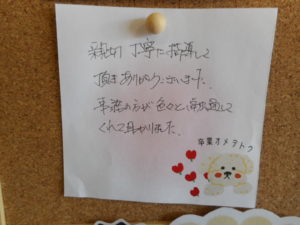 親切 丁寧に指導して
頂きありがとうございました。
事務の方が色々と
くれて助かりました。
卒業オメデトウ